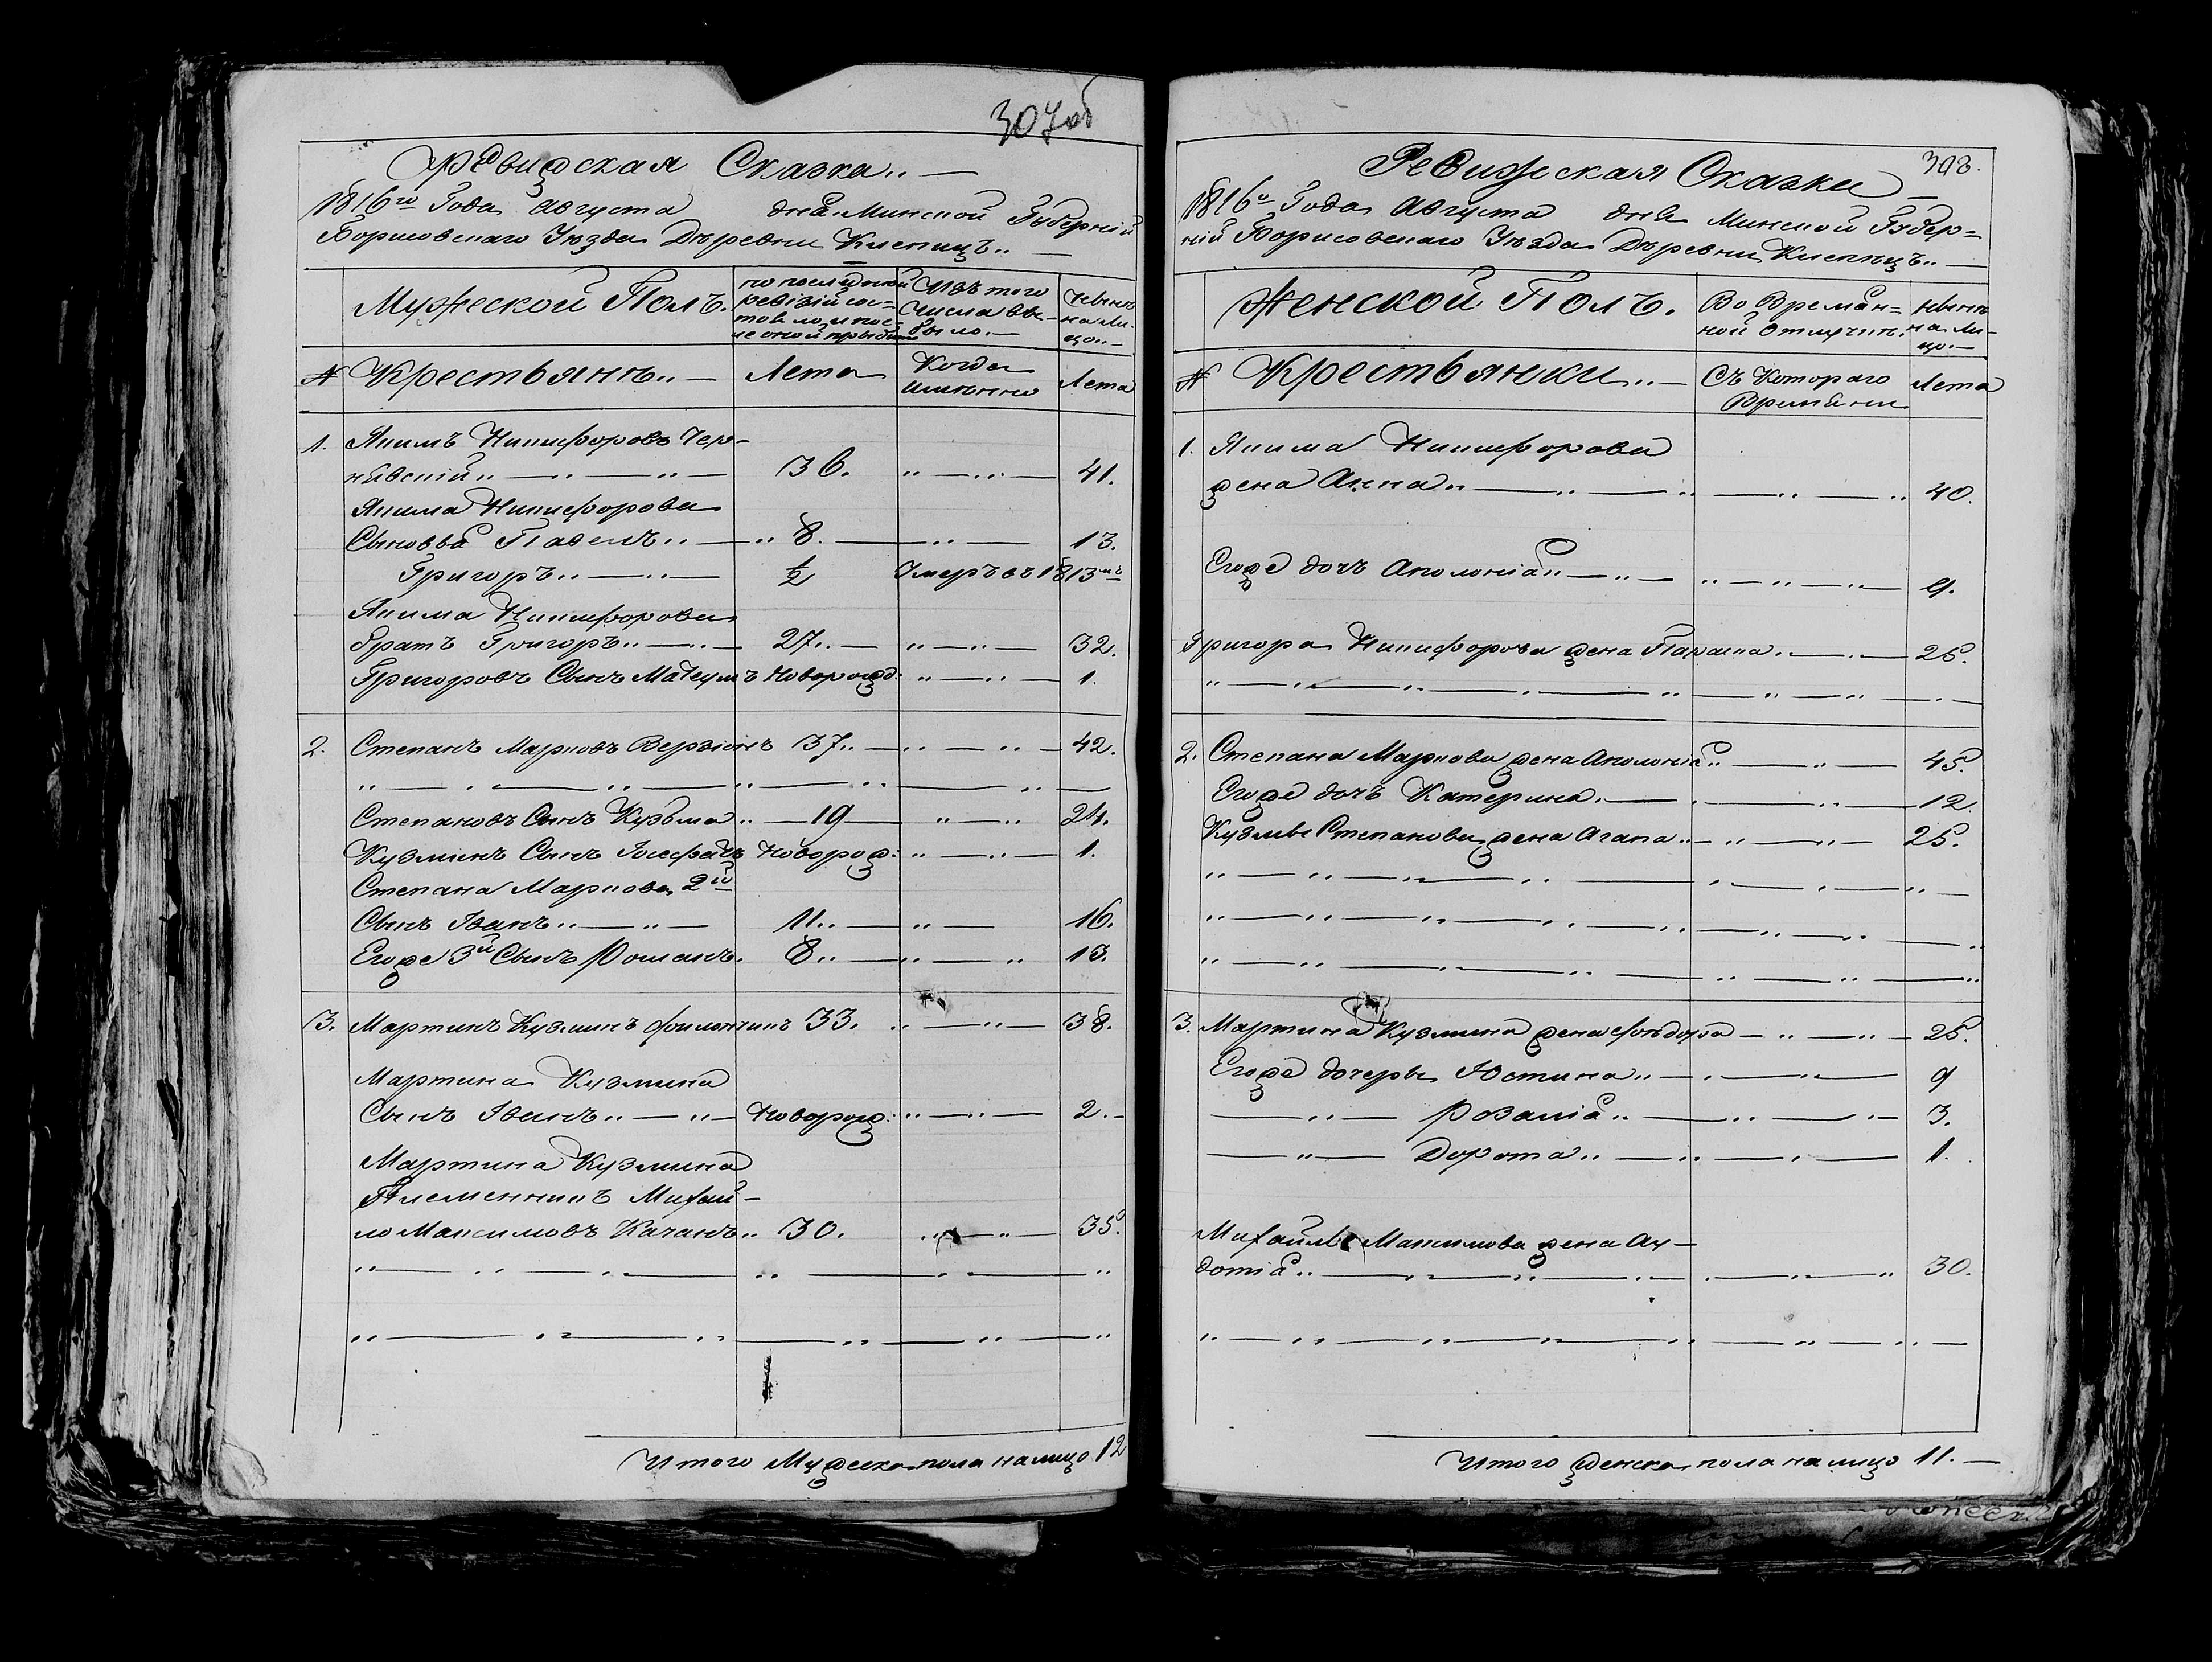 307об
Ревизская Сказка
1816го Года Августа дня Минской Губерній
Борисовскаго Уезда Деревни
Мужеской Полъ.
по последней ревізіи состояло, и после оной прибыло
Изъ того Числа выбыло.
Ныне на лицо
№ Крестьяне
Лета
Когда именно
Лета
1. Якимъ Никифоровъ Чер-
нявскій 36. 41.
Якима Никифорова
Сыновья Павелъ 8. 13.
Григоръ ½ Умеръ въ 1813мъ
Якима Никифорова
братъ Григоръ 27 32.
Григоровъ Сынъ Новорожд: 1.
2. Степанъ Марковъ 37 42.
Степановъ Сынъ Кузьма 19 24.
Кузминъ Сынъ Іосефатъ Новорож: 1.
Степана Маркова 2й
Сынъ Іванъ 11 16.
Егоже 3й Сынъ Романъ 8 13.
3. Мартинъ Кузминъ 33. 38.
Мартина Кузмина
Сынъ Іванъ Новорож: 2.
Мартина Кузмина
Племенникъ Михай-
ло Максимовъ Качанъ 30. 35.
Итого Мужеска пола на лицо 12
398.
Ревижская Сказка
1816го Года Августа дня Минской Губер=
ній Борисовскаго Уезда Деревни
Женской Полъ.
Во Времян=ной Отлучке.
Ныне на лицо
№ Крестьянки
Съ Котораго Времяни
Лета
1. Якима Никифорова
жена Анна 40.
Егоже дочъ Аполонія 9.
Григора Никифорова жена Параша 25.
2. Степана Маркова жена Аполонія 45.
Егоже дочъ Катерина 12.
Кузмы Степанова жена Агапа 25.
3. Мартина Кузмина жена 25.
Егоже дочеры Юстина 9
Розалія 3.
Дорота 1.
Михайлы Максимова жена Ау-
дотія 30.
Итого женска пола на лицо 11.